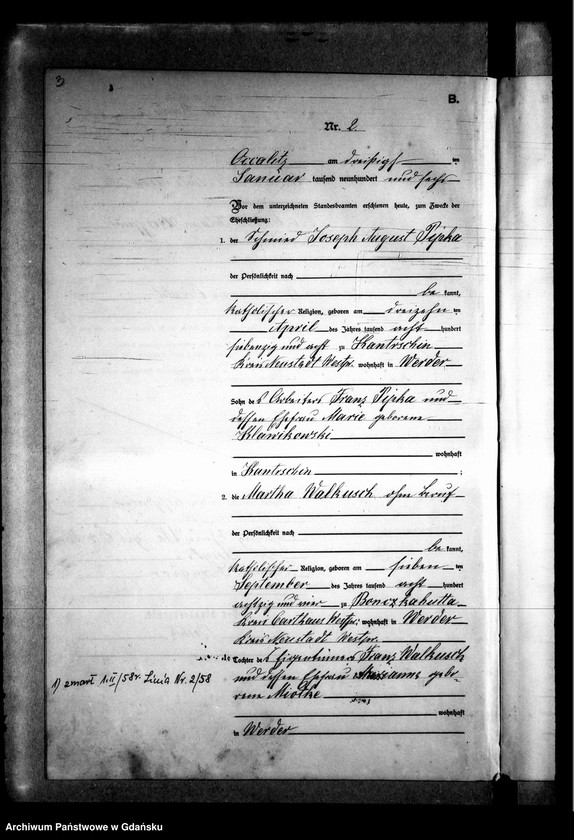 3
B.
Nr. 2.
am dreißigsten
Januar tausend neunhundert und sechs
Vor dem unterzeichneten Standesbeamten erschienen heute, zum Zwecke der
Eheschließung:
1. der Schmied Joseph August Pipka
der Persönlichkeit nach
be kannt,
katholischer Religion, geboren am dreizehn ten
April des Jahres tausend acht hundert
siebenzig und acht zu Kantrschin
Kreis Neustadt Westpr. wohnhaft in Werder
Sohn des Arbeiters Franz Pipka und
dessen Ehefrau Marie geborene
Klawikowski
wohnhaft
in Kantrschin ;
2. die Martha Walkusch ohne Beruf
der Persönlichkeit nach
be kannt,
katholischer Religion, geboren am sieben ten
September des Jahres tausend acht hundert
achtzig und vier zu
Kreis Carthaus Westpr., wohnhaft in Werder
Kreis Neustadt Westpr.
Tochter des Eigentümers Franz Walkusch
und dessen Ehefrau gebo-
rene Miotke
1) zmarł 1.II/58r. Linia Nr. 2/58
wohnhaft
in Werder
Archiwum Państwowe w Gdańsku